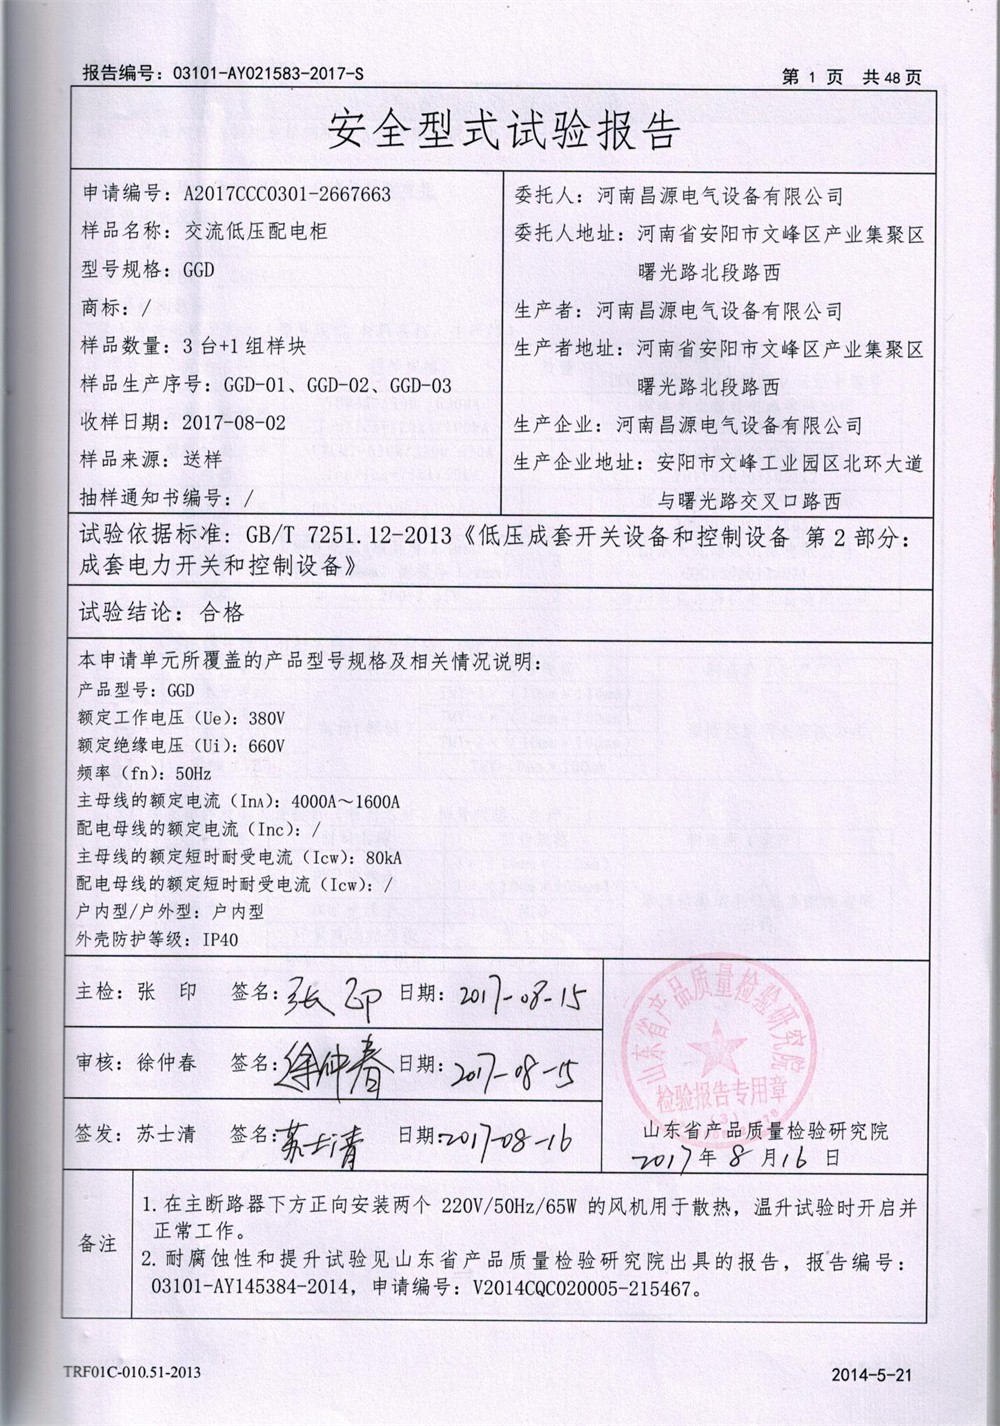 报告编号：03101-AY021583-2017-S
第 1 页 共48页
安全型式试验报告
申请编号：A2017CCC0301-2667663
样品名称：交流低压配电柜
型号规格：GGD
商标：/
样品数量：3台+1组样块
样品生产序号：GGD-01、GGD-02、GGD-03
收样日期：2017-08-02
样品来源：送样
抽样通知书编号：/
委托人：河南昌源电气设备有限公司
委托人地址：河南省安阳市文峰区产业集聚区
曙光路北段路西
生产者：河南昌源电气设备有限公司
生产者地址：河南省安阳市文峰区产业集聚区
曙光路北段路西
生产企业：河南昌源电气设备有限公司
生产企业地址：安阳市文峰工业园区北环大道
与曙光路交叉口路西
试验依据标准：GB/T 7251.12-2013《低压成套开关设备和控制设备 第2部分：
成套电力开关和控制设备》
试验结论：合格
本申请单元所覆盖的产品型号规格及相关情况说明：
产品型号：GGD
额定工作电压（Ue）：380V
额定绝缘电压（Ui）：660V
频率（fn）：50Hz
主母线的额定电流（InA）：4000A～1600A
配电母线的额定电流（Inc）：/
主母线的额定短时耐受电流（Icw）：80kA
配电母线的额定短时耐受电流（Icw）：/
户内型/户外型：户内型
外壳防护等级：IP40
主检：张 印 签名：张印 日期：2017-08-15
审核：徐仲春 签名：徐仲春 日期：2017-08-15
签发：苏士清 签名：苏士清 日期：2017-08-16
山东省产品质量检验研究院
检验报告专用章
山东省产品质量检验研究院
2017年8月16日
备注
1.在主断路器下方正向安装两个 220V/50Hz/65W 的风机用于散热，温升试验时开启并
正常工作。
2.耐腐蚀性和提升试验见山东省产品质量检验研究院出具的报告，报告编号：
03101-AY145384-2014，申请编号：V2014CQC020005-215467。
TRF01C-010.51-2013
2014-5-21